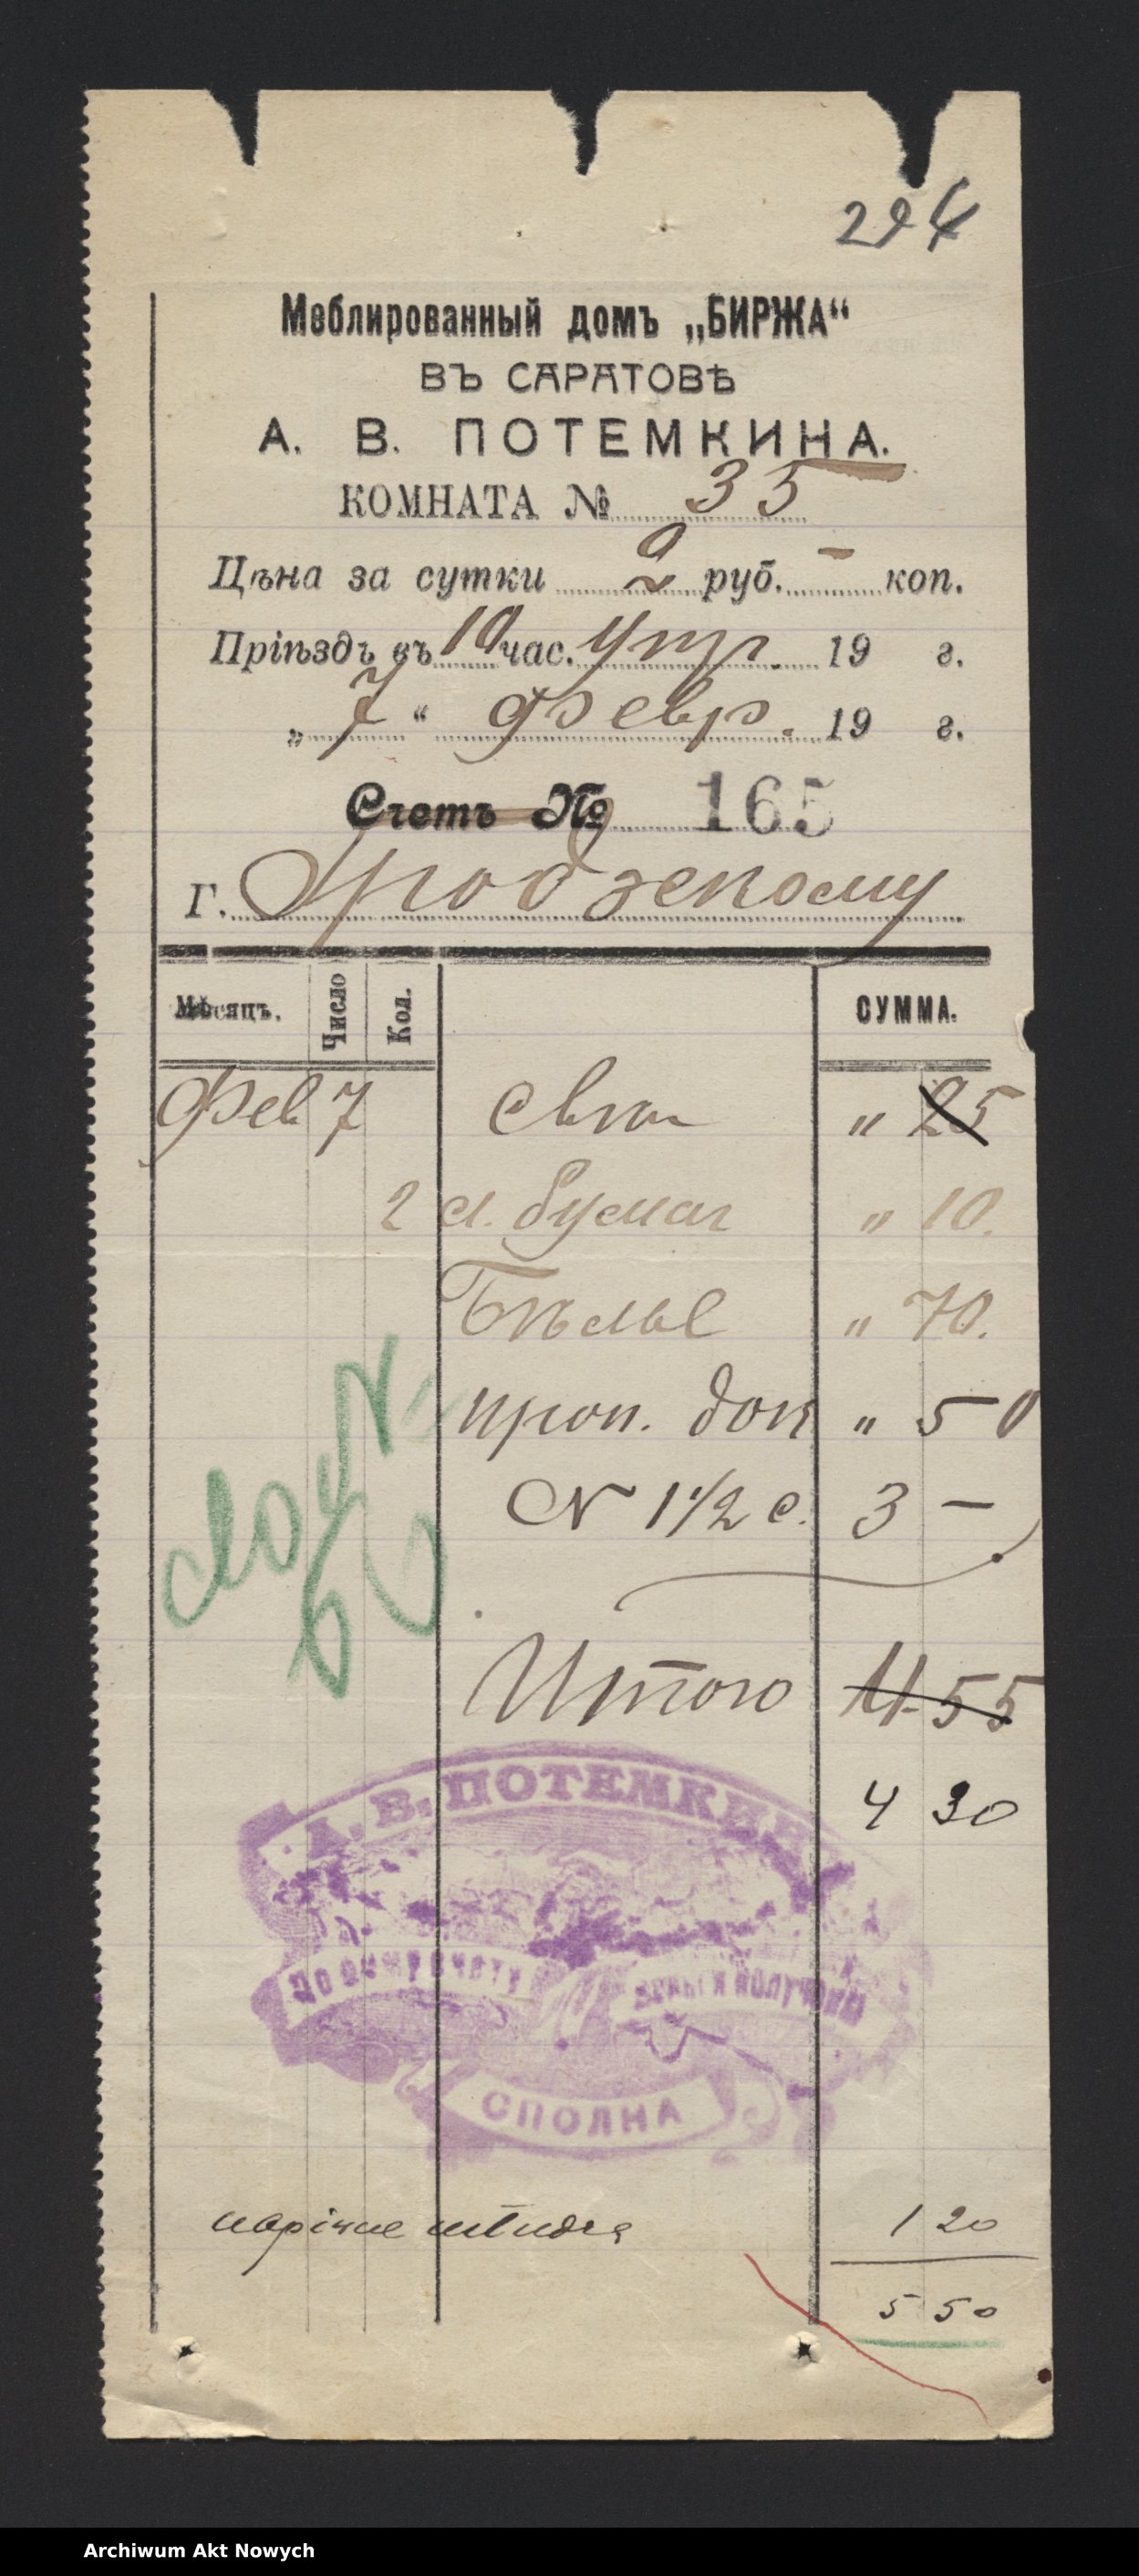 Меблированный домъ „БИРЖА“
ВЪ САРАТОВѢ
А. В. ПОТЕМКИНА.
КОМНАТА № 35
Цѣна за сутки 2 руб. – коп.
Пріѣздъ въ 10 час. утр. 19 г.
„ 7 “ Февр. 19 г.
Счетъ № 165
Г. Гродзскому
Мѣсяцъ. Число Кол. СУММА.
Фев 7 „ 25
2 л. бумаг „ 10.
Бѣлье „ 70.
проп. док „ 50
N 1 1/2 с. 3 –
Итого 4 55
4 30
А. В. ПОТЕМКИН
ПО СЕМУ СЧЕТУ ДЕНЬГИ ПОЛУЧЕНЫ
СПОЛНА
1 20
5 50
Archiwum Akt Nowych